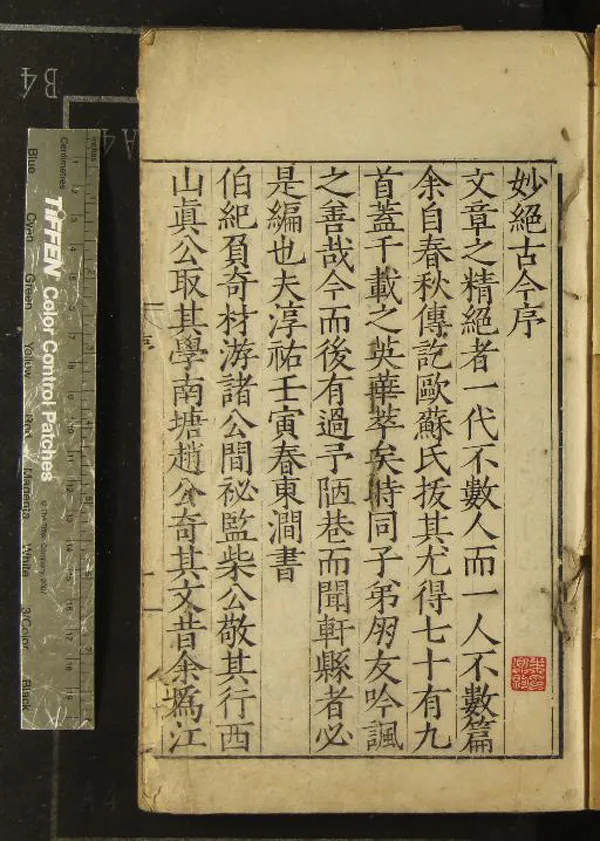 妙絕古今序
文章之精絕者一代不數人而一人不數篇
余自春秋傳訖歐蘇氏拔其尤得七十有九
首蓋千載之英華萃矣時同子弟朋友吟諷
之善哉今而後有過予陋巷而聞軒縣者必
是編也夫淳祐壬寅春東澗書
伯紀負奇材游諸公間祕監柴公敬其行西
山眞公取其學南塘趙公奇其文昔余爲江
inches
Centimetres
TIFFEN Color Control Patches
Blue
Cyan
Green
Yellow
Red
Magenta
White
3/Color
Black
B4
A4